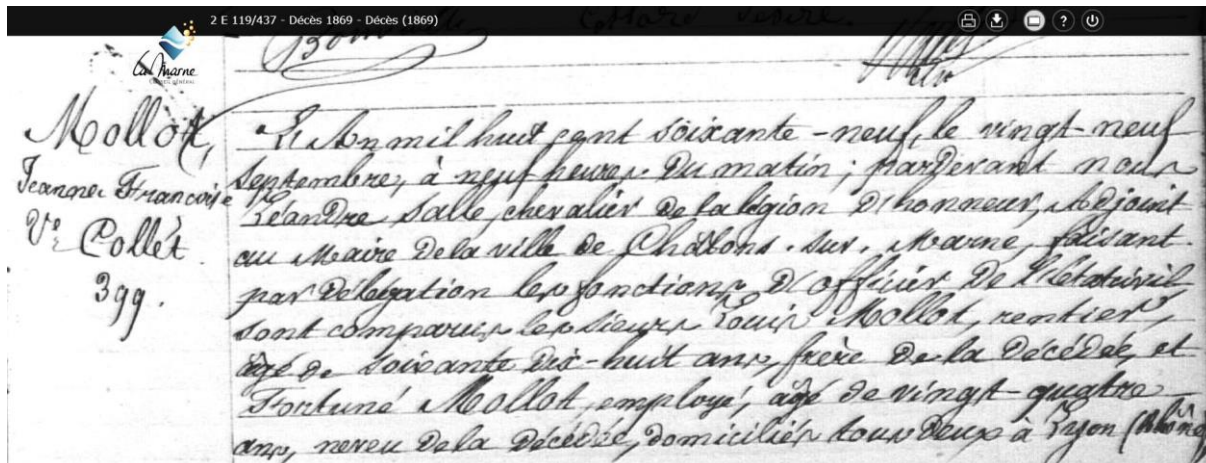 2 E 119/437 - Décès 1869 - Décès (1869)
La Marne
Mollot,
Jeanne Françoise
Ve Collet.
399.
L'An mil huit cent soixante-neuf, le vingt-neuf
Septembre, à neuf heures du matin; pardevant nous
Léandre Salle, chevalier de la légion d'honneur, Adjoint
au Maire de la ville de Châlons-sur-Marne, faisant
par délégation les fonctions d'officier de l'état civil
sont comparus les sieurs Louis Mollot, rentier,
âgé de soixante dix-huit ans, frère de la décédée, et
Fortuné Mollot, employé, âgé de vingt-quatre
ans, neveu de la décédée, domiciliés tous deux à Lyon (Rhône)